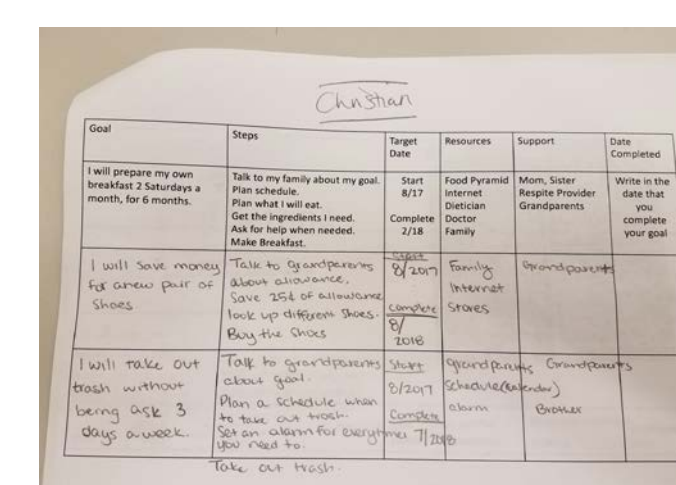 Christian
Goal
Steps
Target
Date
Resources
Support
Date
Completed
I will prepare my own
breakfast 2 Saturdays a
month, for 6 months.
Talk to my family about my goal.
Plan schedule.
Plan what I will eat.
Get the ingredients I need.
Ask for help when needed.
Make Breakfast.
Start
8/17
Complete
2/18
Food Pyramid
Internet
Dietician
Doctor
Family
Mom, Sister
Respite Provider
Grandparents
Write in the
date that
you
complete
your goal
I will save money
for a new pair of
shoes.
Talk to grandparents
about allowance.
Save 25¢ of allowance
look up different shoes.
Buy the shoes
Start
8/2017
Complete
8/
2018
Family
Internet
Stores
Grandparents
I will take out
trash without
being ask 3
days a week.
Talk to grandparents
about goal.
Plan a schedule when
to take out trash.
Set an alarm for everytime
you need to.
Take out trash.
Start
8/2017
Complete
7/2018
grandparents
schedule(calendar)
alarm
Grandparents
Brother